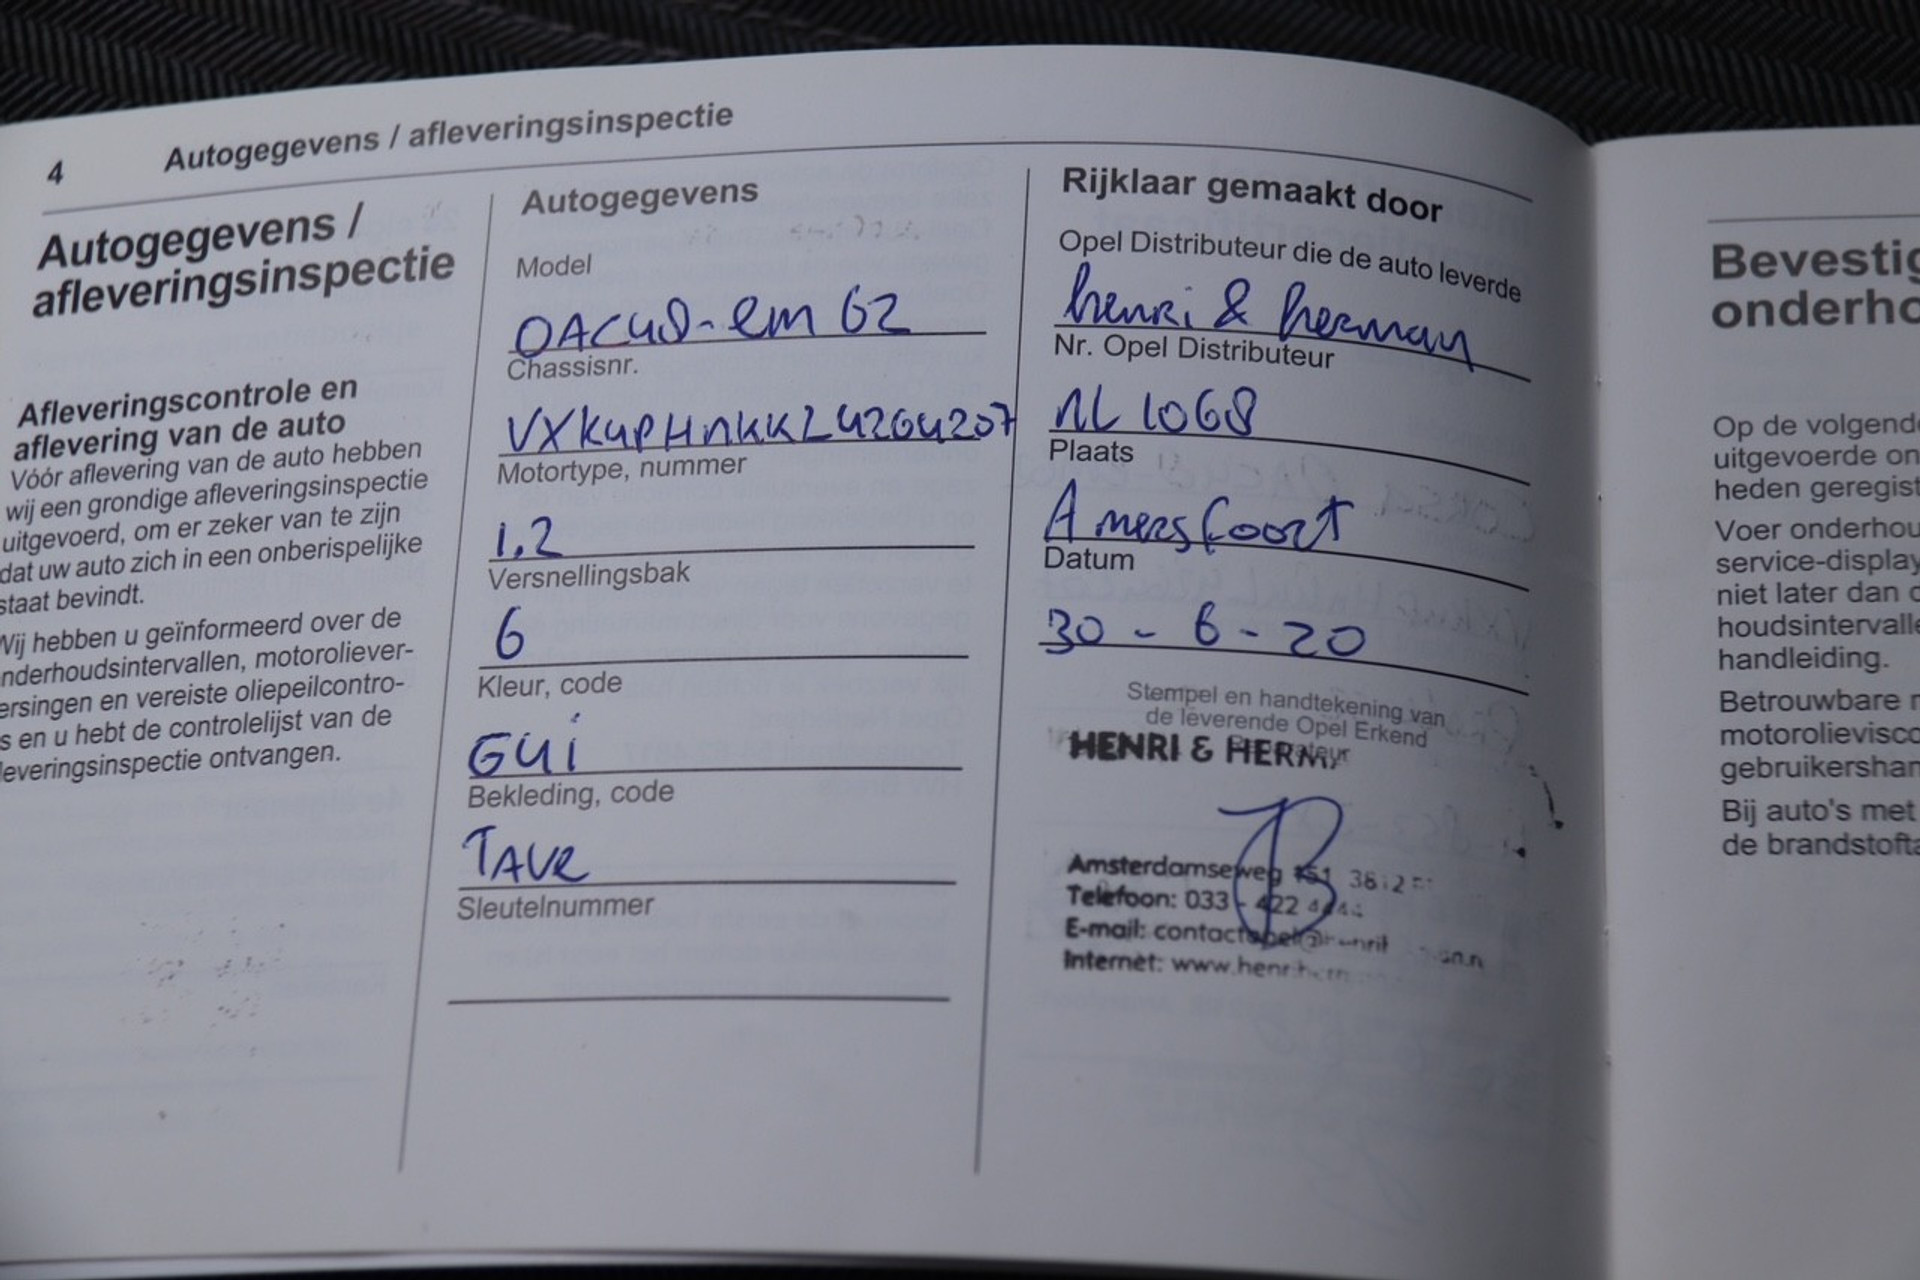 4 Autogegevens / afleveringsinspectie
Autogegevens /
afleveringsinspectie
Afleveringscontrole en
aflevering van de auto
Vóór aflevering van de auto hebben
wij een grondige afleveringsinspectie
uitgevoerd, om er zeker van te zijn
dat uw auto zich in een onberispelijke
staat bevindt.
Wij hebben u geïnformeerd over de
onderhoudsintervallen, motoroliever-
ersingen en vereiste oliepeilcontro-
s en u hebt de controlelijst van de
leveringsinspectie ontvangen.
Autogegevens
Model
OAC48-em62
Chassisnr.
VXKUPHNKKL4264207
Motortype, nummer
1.2
Versnellingsbak
6
Kleur, code
G4i
Bekleding, code
TAVE
Sleutelnummer
Rijklaar gemaakt door
Opel Distributeur die de auto leverde
henri & herman
Nr. Opel Distributeur
NL 1068
Plaats
Amersfoort
Datum
30 - 6 - 20
Stempel en handtekening van
de leverende Opel Erkend
HENRI & HERM
Amsterdamseweg 151 3812
Telefoon: 033 - 422
E-mail:
Internet:
Bevestig
onderho
Op de volgend
uitgevoerde on
heden geregist
Voer onderhou
service-display
niet later dan
houdsintervalle
handleiding.
Betrouwbare
motorolievisco
gebruikershan
Bij auto's met
de brandstofta